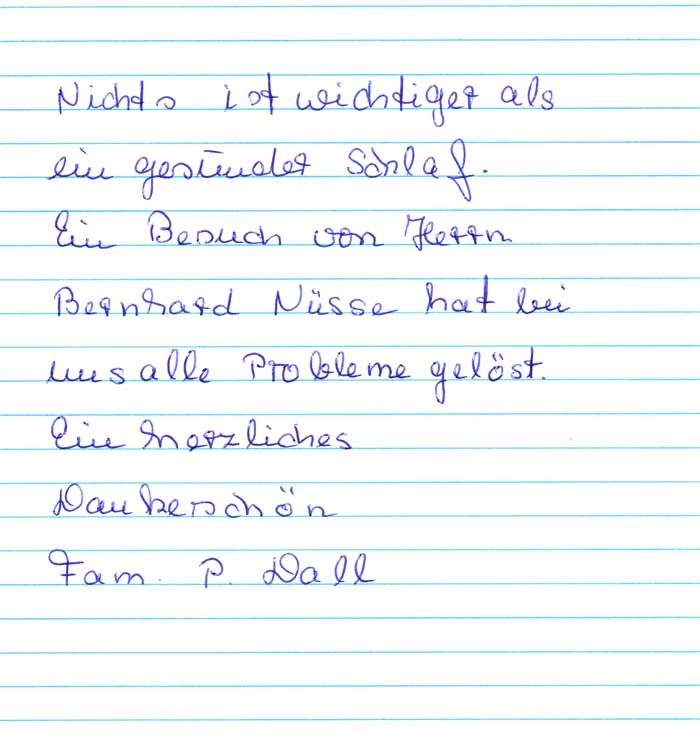 Nichts ist wichtiger als
ein gesunder Schlaf.
Ein Besuch von Herrn
Bernhard Nüsse hat bei
uns alle Probleme gelöst.
Ein herzliches
Dankeschön
Fam. P. Dall